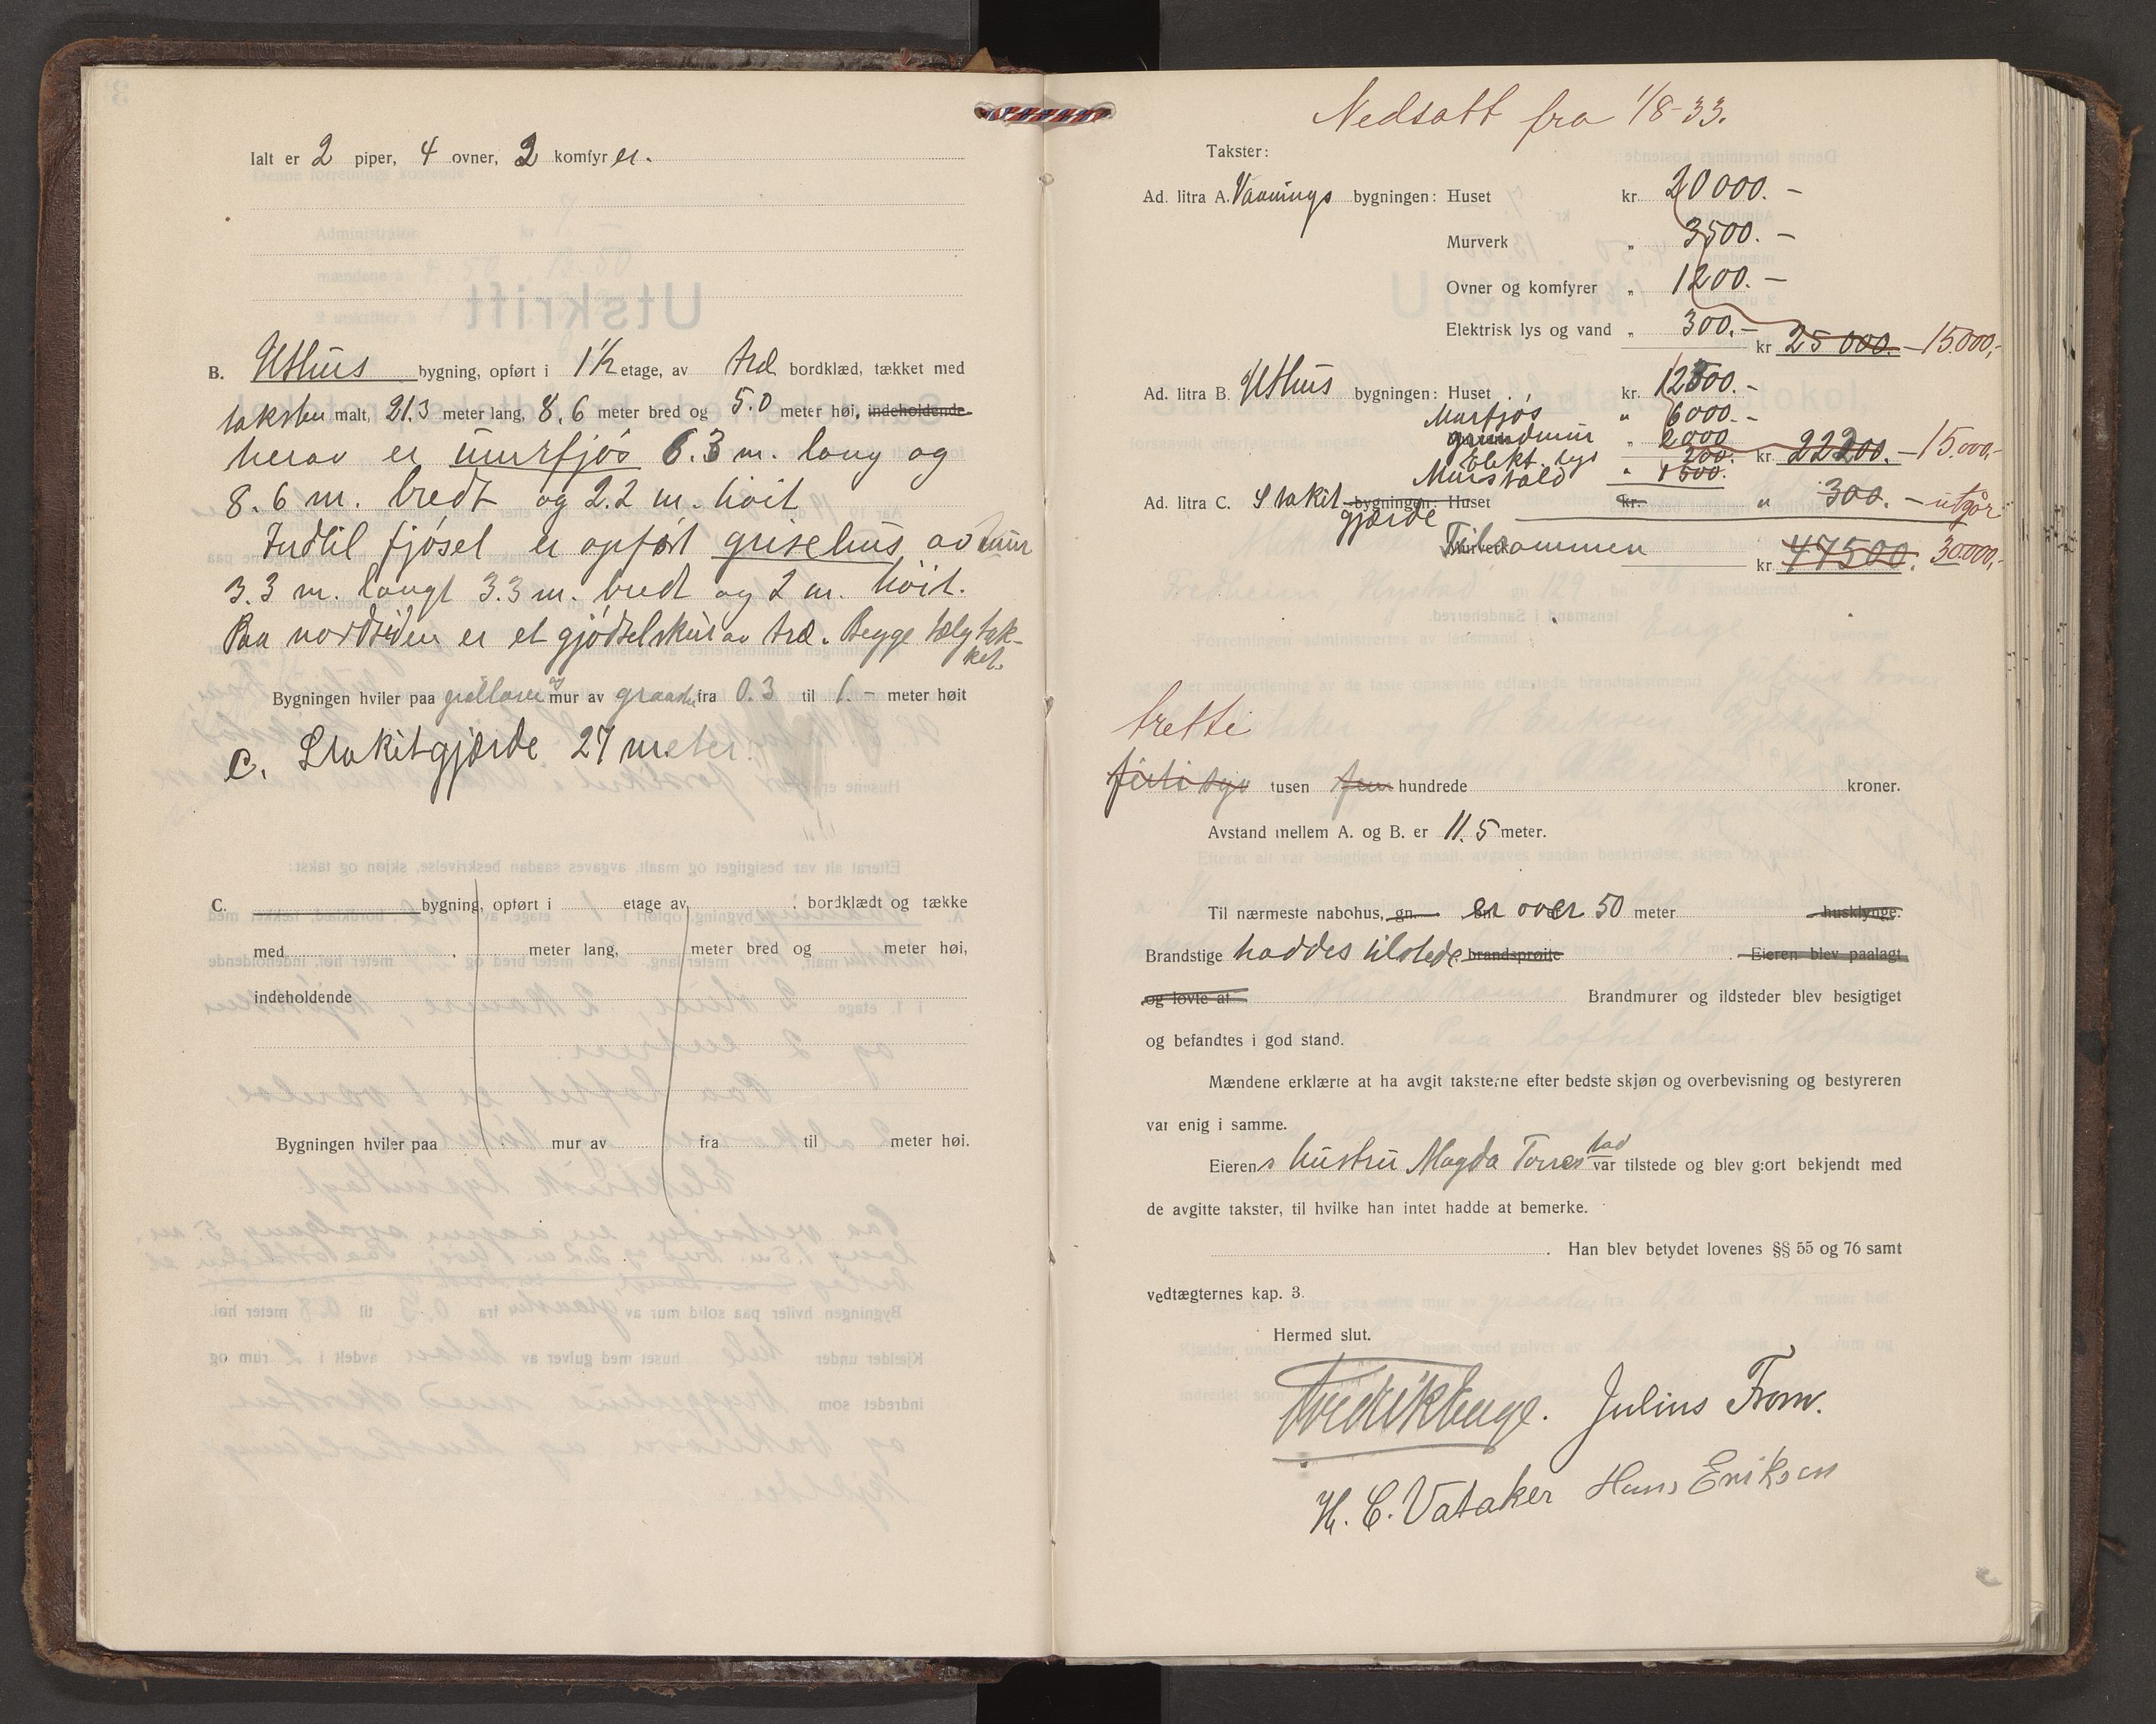 Ialt er 2 piper, 4 ovner, 2 komfyrer.
B. Uthus bygning, opført i 1½ etage, av træ bordklæd, tækket med
taksten malt, 21.3 meter lang, 8.6 meter bred og 5.0 meter høi, indeholdende
herav er murfjøs 6.3 m. lang og
8.6 m. bredt og 2.2 m. høit
Indtil fjøset er opført grisehus av mur
3.3 m. langt 3.3 m. bredt og 2 m. høit.
Paa nordsiden er et gjødselskur av træ. Begge tælgtak-
ket.
Bygningen hviler paa og mur av graasten fra 0.3 til 1.- meter høit
C. Stakitgjærde 27 meter.
C. bygning, opført i etage av bordklædt og tække
med meter lang, meter bred og meter høi,
indeholdende
Bygningen hviler paa mur av fra til meter høi.
Nedsatt fra 1/8-33.
Takster:
Ad. litra A. Vaanings bygningen: Huset kr. 20000.-
Murverk " 3500.-
Ovner og komfyrer " 1200.-
Elektrisk lys og vand " 300.-
kr 25000.- 15.000,-
Ad. litra B. Uthus bygningen: Huset kr. 12500.-
Murfjøs " 6000.-
grundmur " 2000
Elekt. lys 200. kr. 22200.- 15.000,-
" 1500.
Ad. litra C. Stakit bygningen: Huset kr. " 300.- utgår
gjærde
Murverk Tilsammen
kr 47500. 30.000,-
tretti
firtisyv tusen fem hundrede kroner.
Avstand mellem A. og B. er 11.5 meter.
Til nærmeste nabohus, gn. bn. er over 50 meter husklynge.
Brandstige haddes tilstede. brandsprøite . Eieren blev paalagt
og lovte at Brandmurer og ildsteder blev besigtiget
og befandtes i god stand.
Mændene erklærte at ha avgit taksterne efter bedste skjøn og overbevisning og bestyreren
var enig i samme.
Eierens hustru Magda Torrestad var tilstede og blev gjort bekjendt med
de avgitte takster, til hvilke han intet hadde at bemerke.
. Han blev betydet lovenes §§ 55 og 76 samt
vedtægternes kap. 3.
Hermed slut.
Fredrik Enge. Julius From.
H. C. Vataker Hans Eriksen